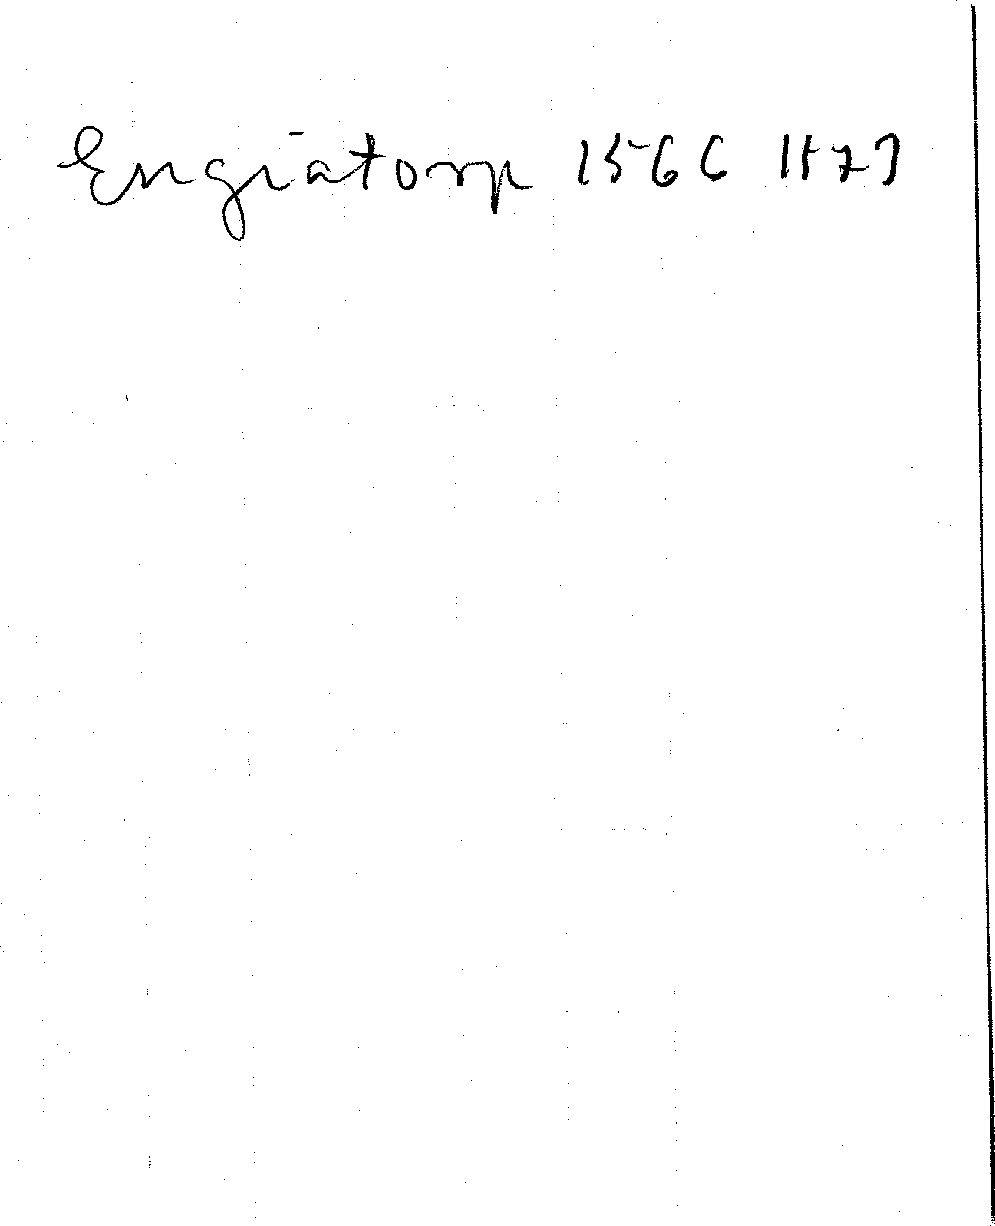 Engiatorp 1566 1573